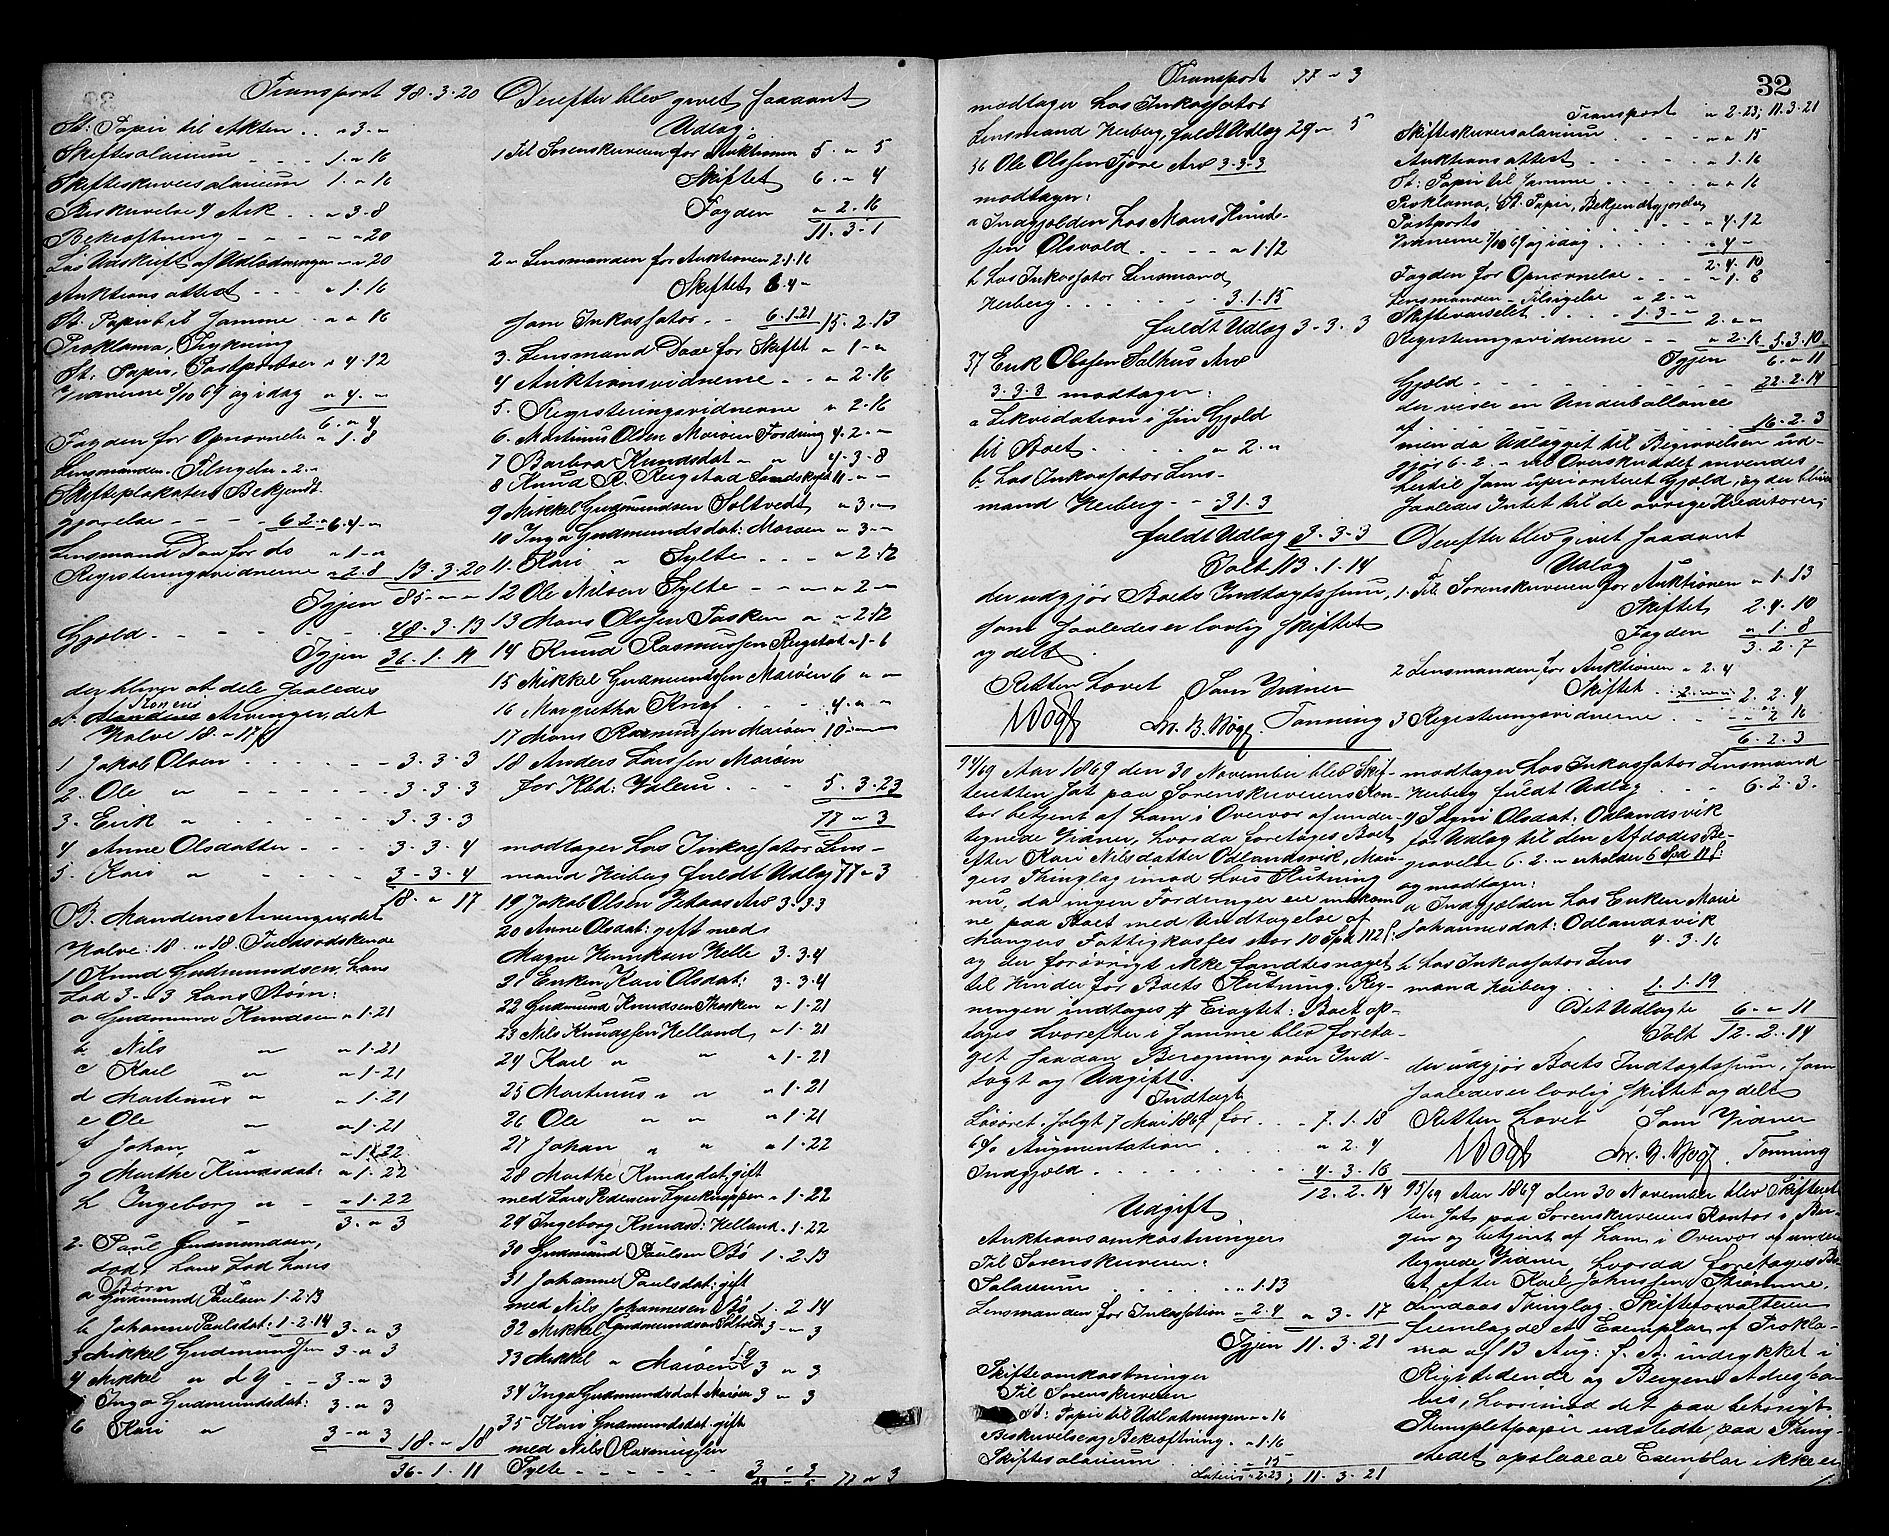 Transport 98-3-20
St: Papir til Akten . . " 3 - "
Skiftesalarium - - - 1. " 16
Skifteskriversalarium 1. " 16
Beskrivelse 9 Ark . . " 3-8
Bekræftning - - - " " 20
Los Udskrift af Udlodningen " " 20
Auktionsattest - - - " 1.16
St. Papir til samme . . " " 16
Proklama, Trykning
St: Papir, Postportoer " 4.12
Vidnerne 8/10 69 og idag " 4. "
6. " 4
Fogden for Opnævnelse " 1.8
Lensmanden - Tilsigelse " 2. "
Skifteplakatens Bekjendt-
gjørelse - - - 6 2. " 6.4. "
Lensmand Daae for do " 1 - "
Registeringsvidnerne " 2.8 13.3.20
Igjen 85 - " - "
Gjeld. - - - - - 48.3.13
Igjen 36.1.11
der bliver at dele saaledes
A. Konens Arvinger, det
Halve 18. " 17 ß
1 Jakob Olsen - - - - 3.3.3
2. Ole " - - - - - 3.3.3
3. Erik " - - - - - 3.3.3
4 Anne Olsdatter - - - 3.3.4
5. Kari " - - - - 3-3-4
18. " 17
B. Mandens Arvinger, det
Halve: 18. " 18. Fuldsødskende
1 Knud Gudmundsen, hans
Lod 3-"-3 hans Børn:
a Gudmund Knudsen " 1.21
b Nils " " 1.21
c Karl " " 1.21
d Martinus " " 1.21
e Ole " " 1.21
f Johan, " " 1.22
g Marthe Knudsdat: " 1.22
h Ingeborg " " 1.22
3. " 3
2. Paul Gudmundsen,
død, hans Lod hans
Børn
a Gudmund Paulsen 1.2.13
b Johanne Paulsdat: 1.2.14 3 - " 3
3 Mikkel Gudmundsen 3 - " 3
4 Mikkel " d y - - 3 - " 3
5 Inga Gudmundsdat: 3 - " 3
6 Kari " 3 - " 3
18. " 18
36.1.11
Derefter blev givet saadant
Udlæg
1 Til Sorenskriveren for Auktionen 5 - " 5
Skiftet 6. " 4
Fogden " 2.16
11.3.1
2 " Lensmanden for Auktionen 2.1.16
Skiftet 6.4 "
som Inkassator. - 6.1.21 15.2.13
3. Lensmand Daae for Skiftet " 1 - "
4 Auktionsvidnerne . . " 2.16
5. Registeringsvidnerne " 2.16
6. Martinus Olsen Marøen Fordring 4.2. "
7 Barbra Knudsdat " " 4.3.8
8 Knud R. Reigstad Landskyld 11. " - "
9 Mikkel Gudmundsen Soltvedt " 3 - "
10 Inga Gudmundsdat: Marøen " 3 - "
11. Kari " Sylte - - - " 2.12
12 Ole Nilsen Sylte - " - " 2 - "
13 Mons Olsen Fosken " " 2.12
14 Knud Rasmussen Reigstad " 1 - 6
15 Mikkel Gudmundsen Marøen 6 " - "
16 Margretha Knuf . . . - 4. " "
17 Mons Rasmussen Marøen 10 - " "
18 Anders Larssen Marøen
for Kbd: Valeur . . . 5.3.23
77 - " 3
modtager hos Inkassator Lens-
mand Heiberg fuldt Udlæg 77 " 3
19 Jakob Olsen Hetaas Arv 3.3.3
20 Anne Olsdat: gift med
Magne Henriksen Helle 3.3.4
21 Enken Kari Olsdat: 3.3.4
22 Gudmund Knudsen Fosken " 1.21
23 Nils Knudssen Helland " 1.21
24 Karl " " " 1.21
25 Martinus " " " 1.21
26 Ole " " " 1.21
27 Johan " " " 1.22
28 Marthe Knudsdat, gift
med Lars Pedersen " 1.22
29 Ingeborg Knudsd: Helland " 1.22
30 Gudmund Paulsen Bø 1.2.13
31 Johanne Paulsdat: gift
med Nils Johannesen Bø 1.2.14
32 Mikkel Gudmundsen Soltvedt 3 - " 3
33 Mikkel " Marøen d y 3 " 3
34 Inga Gudmundsdat Marøen 3 " 3
35 Kari Gudmundsdat: gift
med Nils Rasmussen
Sylte - - - - - 3 " 3
77 " 3
Transport 77 " 3
modtager hos Inkassator
Lensmand Heiberg, fuldt Udlæg 29 " 5
36 Ole Olsen Fjøre Arv 3-3-3
modtager:
a Indgjelden hos Mons Knud-
sen Olsvold - - - " 1.12
b hos Inkassator Lensmand
Heiberg . . . . . 3.1.15
fuldt Udlæg 3-3-3
37 Erik Olsen Salhus Arv
3.3.3 modtager:
a Likvidation i sin Gjeld
til Boet . . . . " 2. "
b hos Inkassator Lens-
mand Heiberg - - 3 1.3
fuldt Udlæg 3-3-3
Talt 113.1.14
der udgjør Boets Indtægtssum,
som saaledes er lovlig skiftet
og delt.
Retten hævet Som Vidner
Vogt Chr. B. Vogt. Tønning
94/69 Aar 1869 den 30 November blev Skif-
teretten sat paa Sorenskriverens Kon-
tor betjent af ham i Overvær af under-
tegnede Vidner, hvorda foretoges Boet
efter Kari Nilsdatter Odlandsvik, Man-
gers Thinglag imod hvis Slutning
nu, da ingen Fordringer ere indkom-
ne paa Boet med Undtagelse af
Mangers Fattigkasses stor 10 Spd 112 ß:
og der forøvrigt ikke fandtes noget
til Hinder for Boets Slutning. Reg-
ningen indtages # Eragtet: Boet op-
tages hvorefter i samme blev foreta-
get saadan Beregning over Ind-
tægt og Udgift.
Indtægt
Løsøret solgt 7 Mai 1869 for . . . 7.1.18
6 % Augmentation . . . " 2.4
Indgjeld . . . . . . 4.3.16
12.2.14
Udgift
Auktionsomkostninger
Til Sorenskriveren:
Salarium . . . . . " 1.13
Lensmanden for Inkassation " 2.4 " 3 - 17
Igjen 11.3.21
Skifteomkostninger
Til Sorenskriveren
St: Papir til Udlodningen " " 16
Beskrivelse og Bekræftning. " 1.16
Skiftesalarium . . . . " 15
Lateris " 2.23; 11.3.21
32
Transport " 2-23; 11.3.21
Skifteskriversalarium . . . " " 15
Auktionsattest . . . . " 1.16
St: Papir til samme . . . . " " 16
Proklama, St. Papir, Bekjendtgjørelse,
Postporto . . . . " 4.12
Vidnerne 7/10 69 og idag . . . . . " 4 -
2.4.10
Fogden for Opnævnelse . . . " 1.8
Lensmanden - Tilsigelse " 2 - "
Skiftevarselet . . . . 1.3 - " 2. " "
Registeringsvidnerne - - " 2.16 5.3.10
Igjen 6. " 11
Gjæld - . . . . . . 22.2.14
der viser en Underballance
af . . . . . . . 16.2.3
men da Udlægget til Begravelsen ud-
gjør 6.2 - " vil Overskuddet anvendes
hertil som uprioriteret Gjæld, og der bliver
saaledes Intet til de øvrige Kreditorer.
Derefter blev givet saadant
Udlæg
1 Til Sorenskriveren for Auktionen " 1.13
Skiftet 2.4.10
Fogden " 1.8
3.2.7
2 Lensmanden for Auktionen " 2.4
Skiftet . . 2 - " " 2.2.4
3 Registeringsvidnerne . . " 2 16
6.2.3
modtager hos Inkassator Lensmand
Heiberg fuldt Udlæg . . . 6.2.3.
4 Sigri Olsdat: Odlandsvik
for Udlæg til den Afdødes Be-
gravelse 6.2 - " erholder 6 Spd 11 ß:
og modtager:
a Indgjælden hos Enken Marie
Johannesdat: Odlandsvik
4.3.16
b hos Inkassator Lens-
mand Heiberg . . . 1.1.19
Det Udlagte 6 - " 11
Talt 12-2-14
der udgjør Boets Indtægtssum, som
saaledes er lovlig skiftet og delt
Retten hævet Som Vidner
Vogt Chr. B. Vogt. Tønning
95/69 Aar 1869 den 30 November blev Skifteret-
ten sat paa Sorenskriverens Kontor i Ber-
gen og betjent af ham i Overvær af under-
tegnede Vidner, hvorda foretoges Bo-
et efter Karl Johnssen Strømme,
Lindaas Thinglag. Skifteforvalteren
fremlagde et Exemplar af Prokla-
ma af 13 Aug: f. A. indrykket i
Rigstidende og Bergens Adresseavis,
hvorimod det paa behørigt
Stempletpapir udstedte, paa Thing-
stedet opslaaede Exemplar ikke er